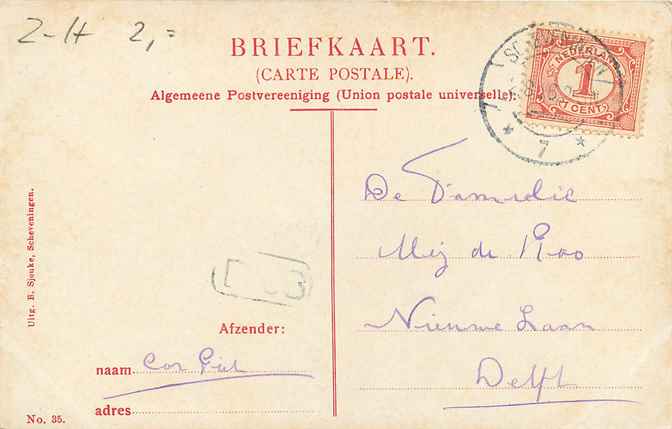 Z-H 2,=
BRIEFKAART.
(CARTE POSTALE).
Algemeene Postvereeniging (Union postale universelle).
NEDERLAND
1
1 CENT
7
De Familie
Mej de Roo
Nieuwe Laan
Delft
Uitg. B. Sjouke, Scheveningen.
Afzender:
naam Cor Piet
adres
No. 35.